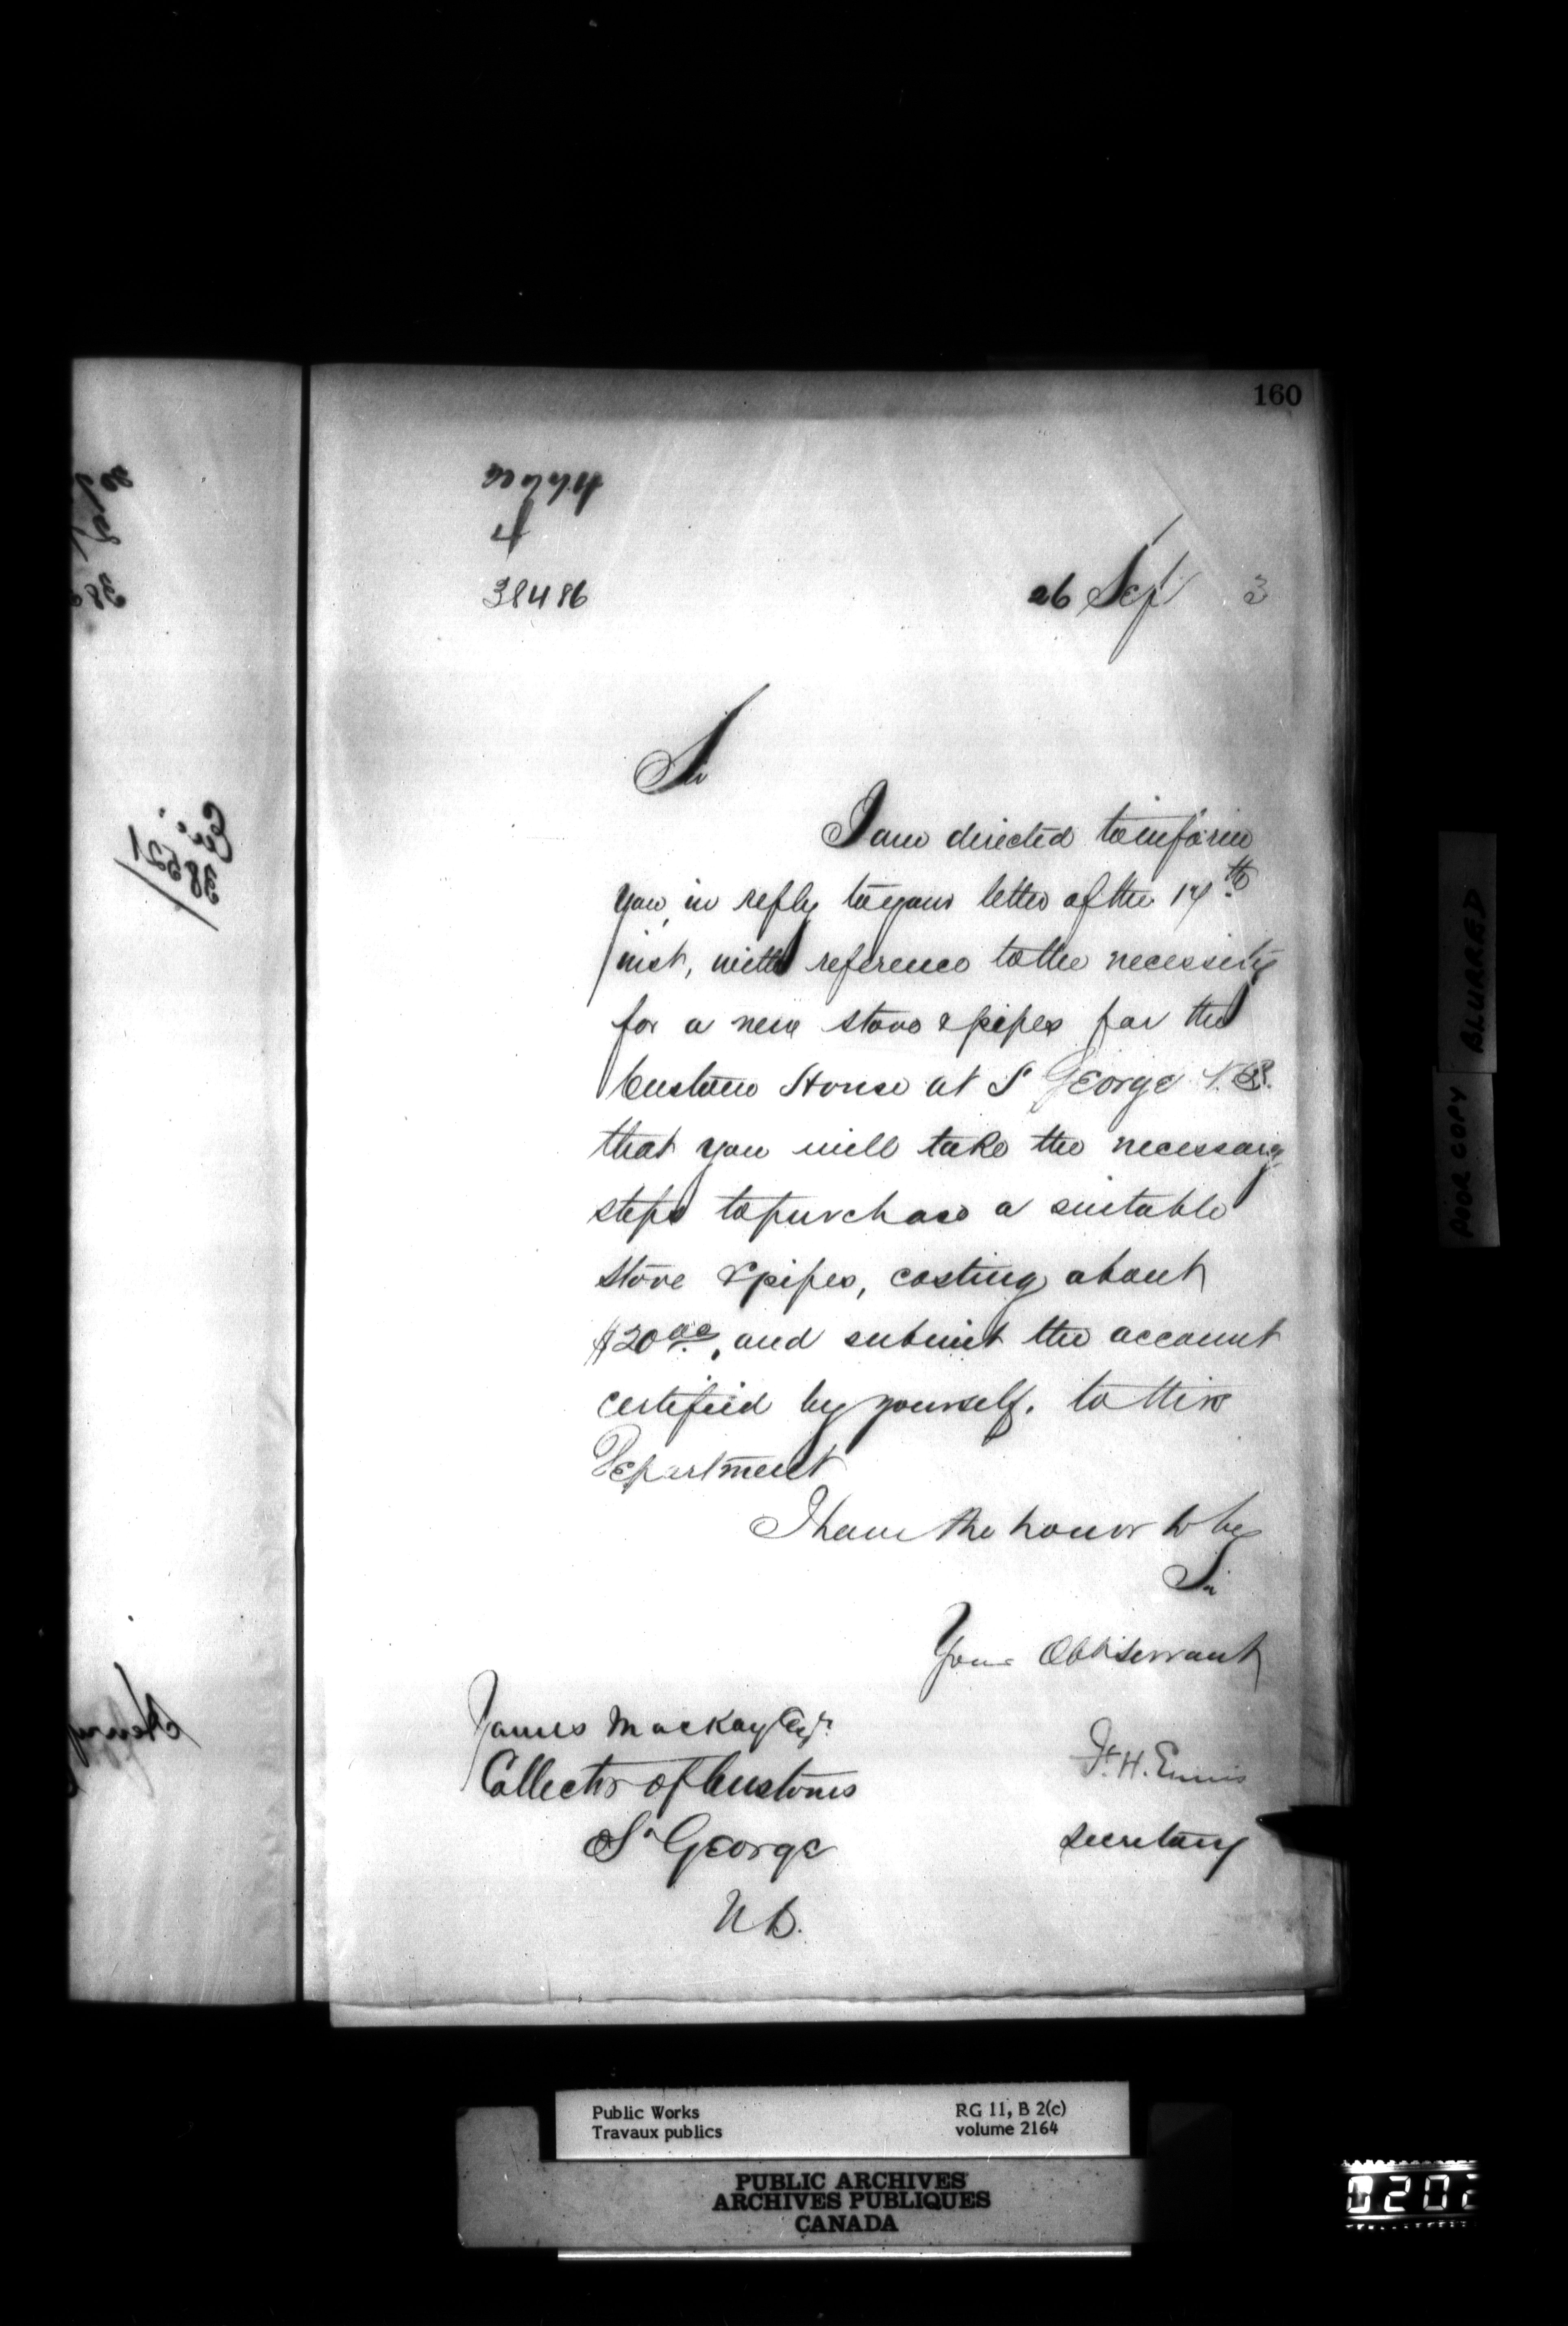 160
4
38486
26 Sept 3
Sir
I am directed to inform
you, in reply to your letter of the 17th
inst, with reference to the necessity
for a new stove & pipes for the
Custom House at St George N.B.
that you will take the necessary
steps to purchase a suitable
stove & pipes, costing about
$20.00, and submit the account
certified by yourself, to this
Department
I have the honor to be
Sir
Your Obt servant
James Mackay Esqr.
Collector of Customs
St George
N B.
F. H. Ennis
Secretary
38521
Henry
POOR COPY
BLURRED
Public Works
Travaux publics
RG 11, B 2(c)
volume 2164
PUBLIC ARCHIVES
ARCHIVES PUBLIQUES
CANADA
0202